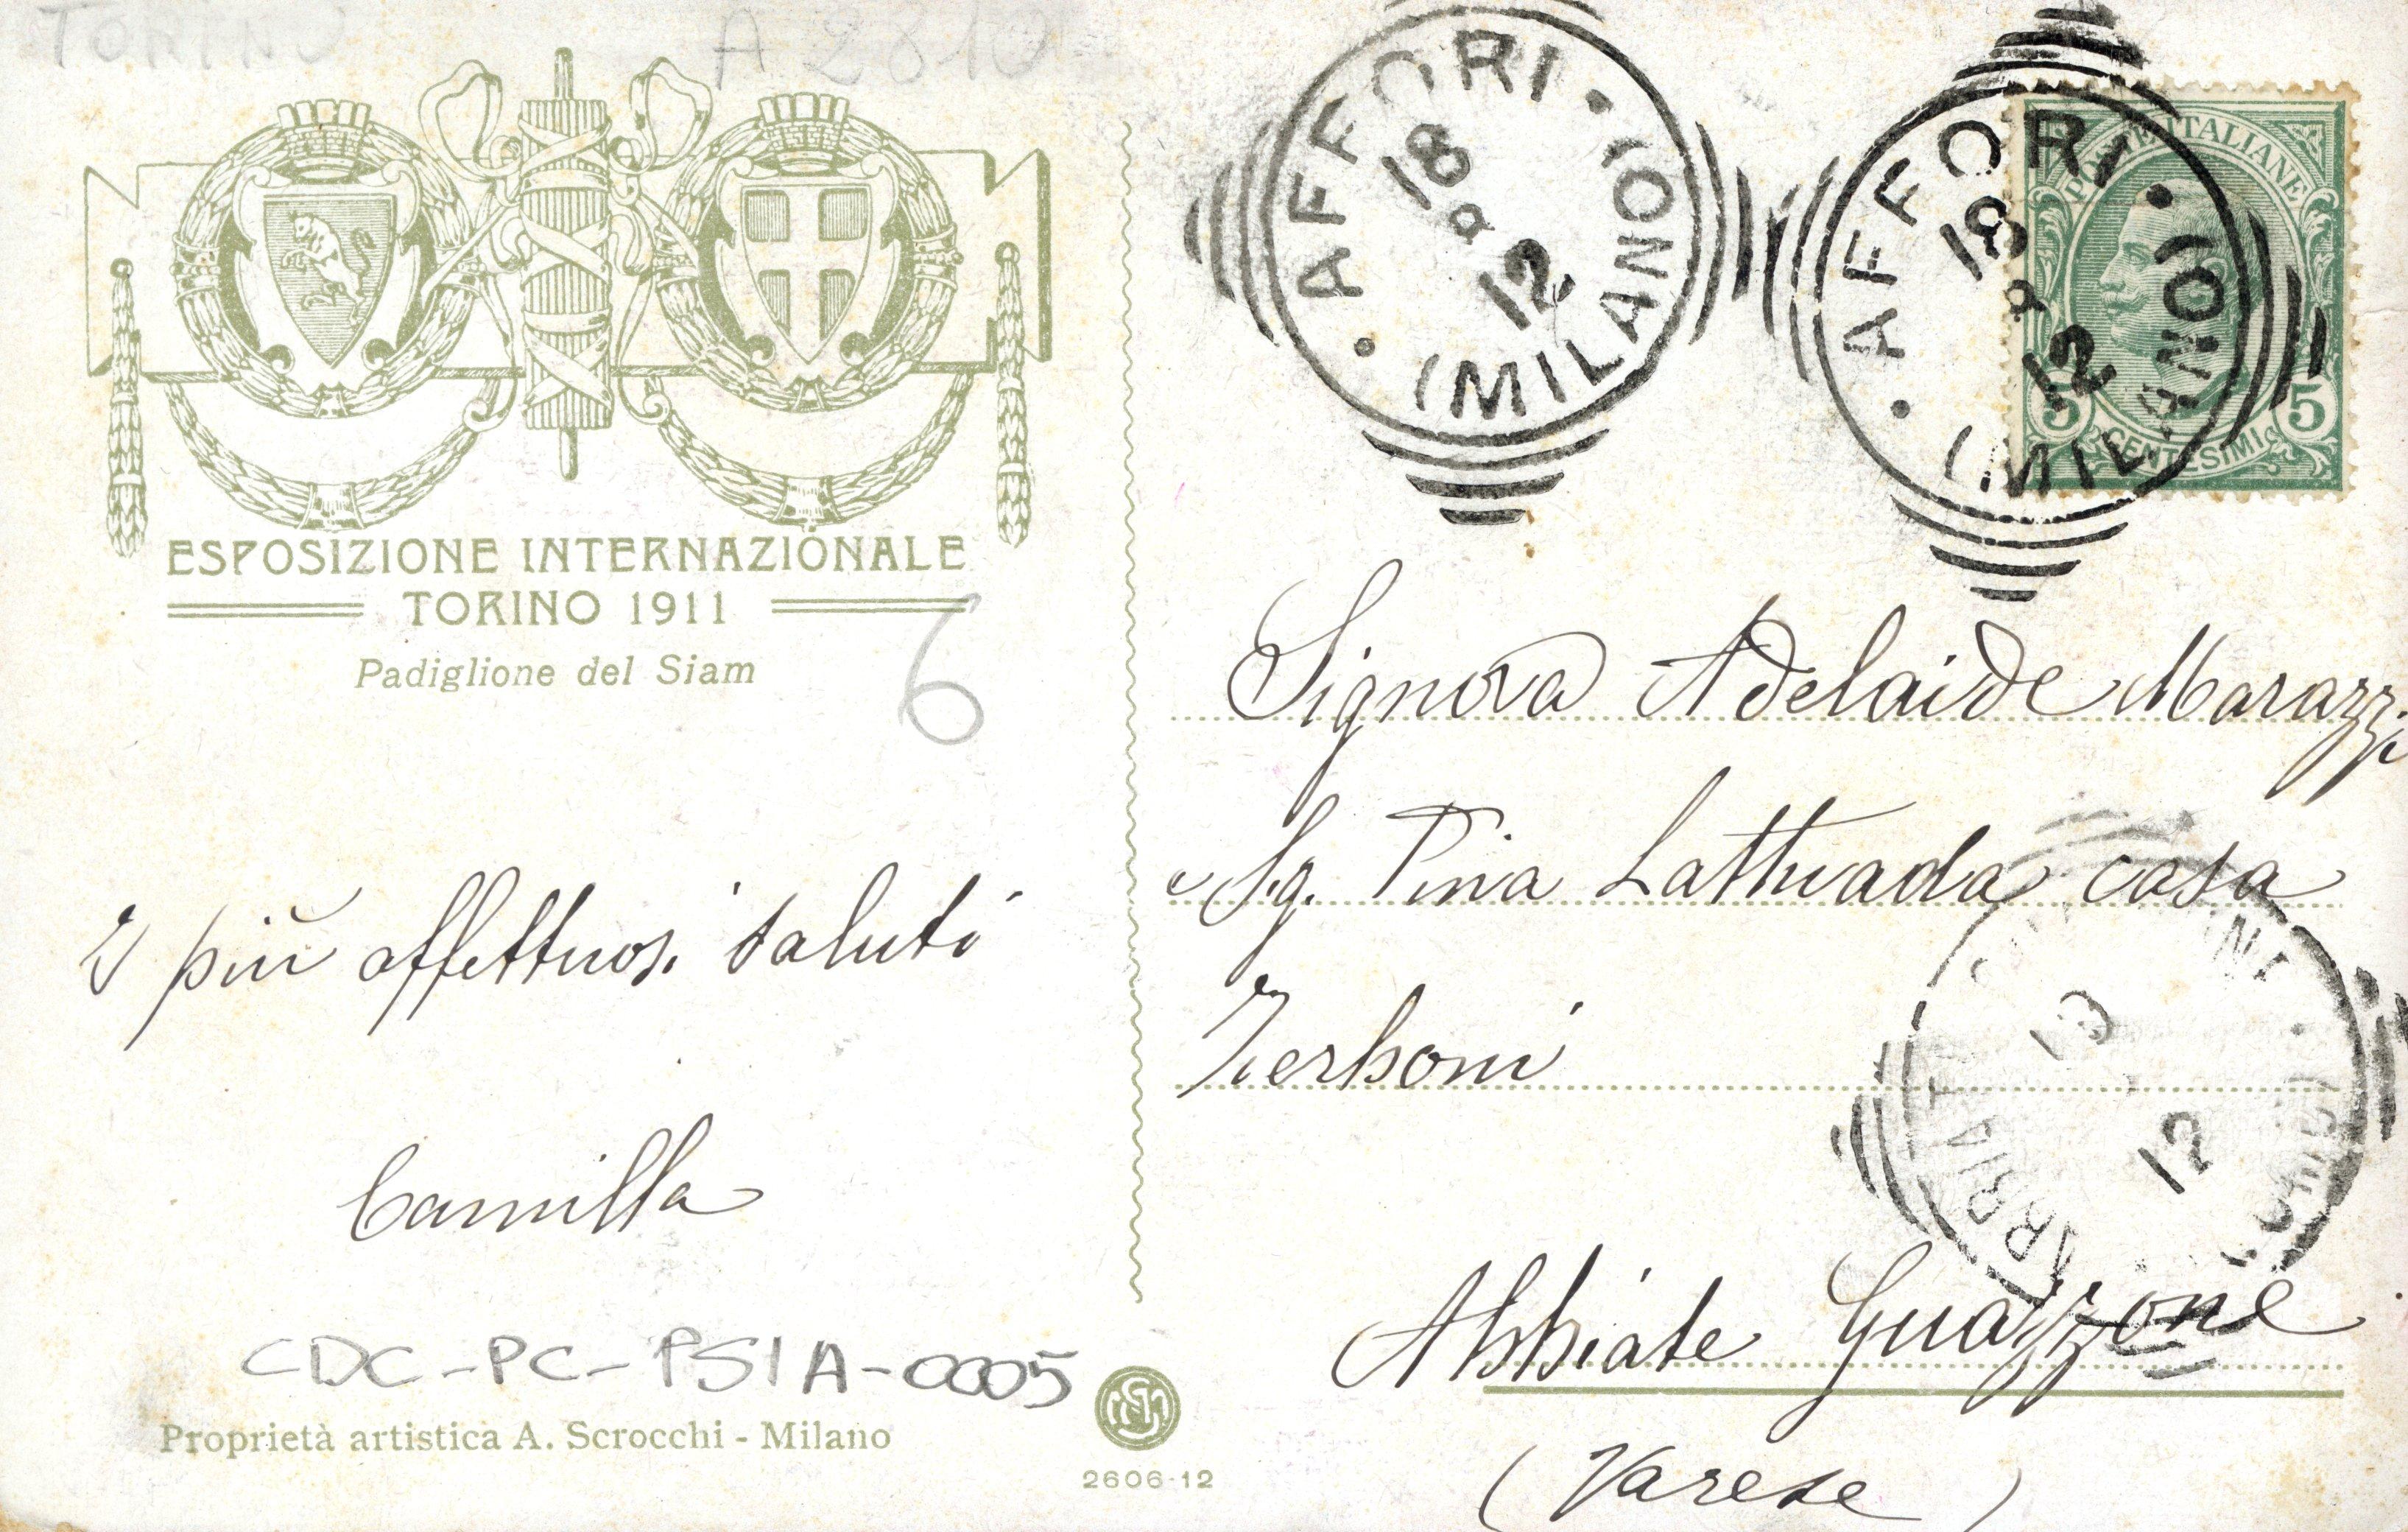 TORINO
A 2810
ESPOSIZIONE INTERNAZIONALE
TORINO 1911
Padiglione del Siam
6
I più affettuosi saluti
Camilla
CDC-PC-PSIA-0005
Proprietà artistica A. Scrocchi - Milano
2606-12
AFFORI
(MILANO)
18
12
AFFORI
(MILANO)
18
12
POSTE ITALIANE
5
5
CENTESIMI
Signora Adelaide Marazzi
e Sg. Pina Lattuada casa
Zerboni
Abbiate Guazzone
(Varese)
12